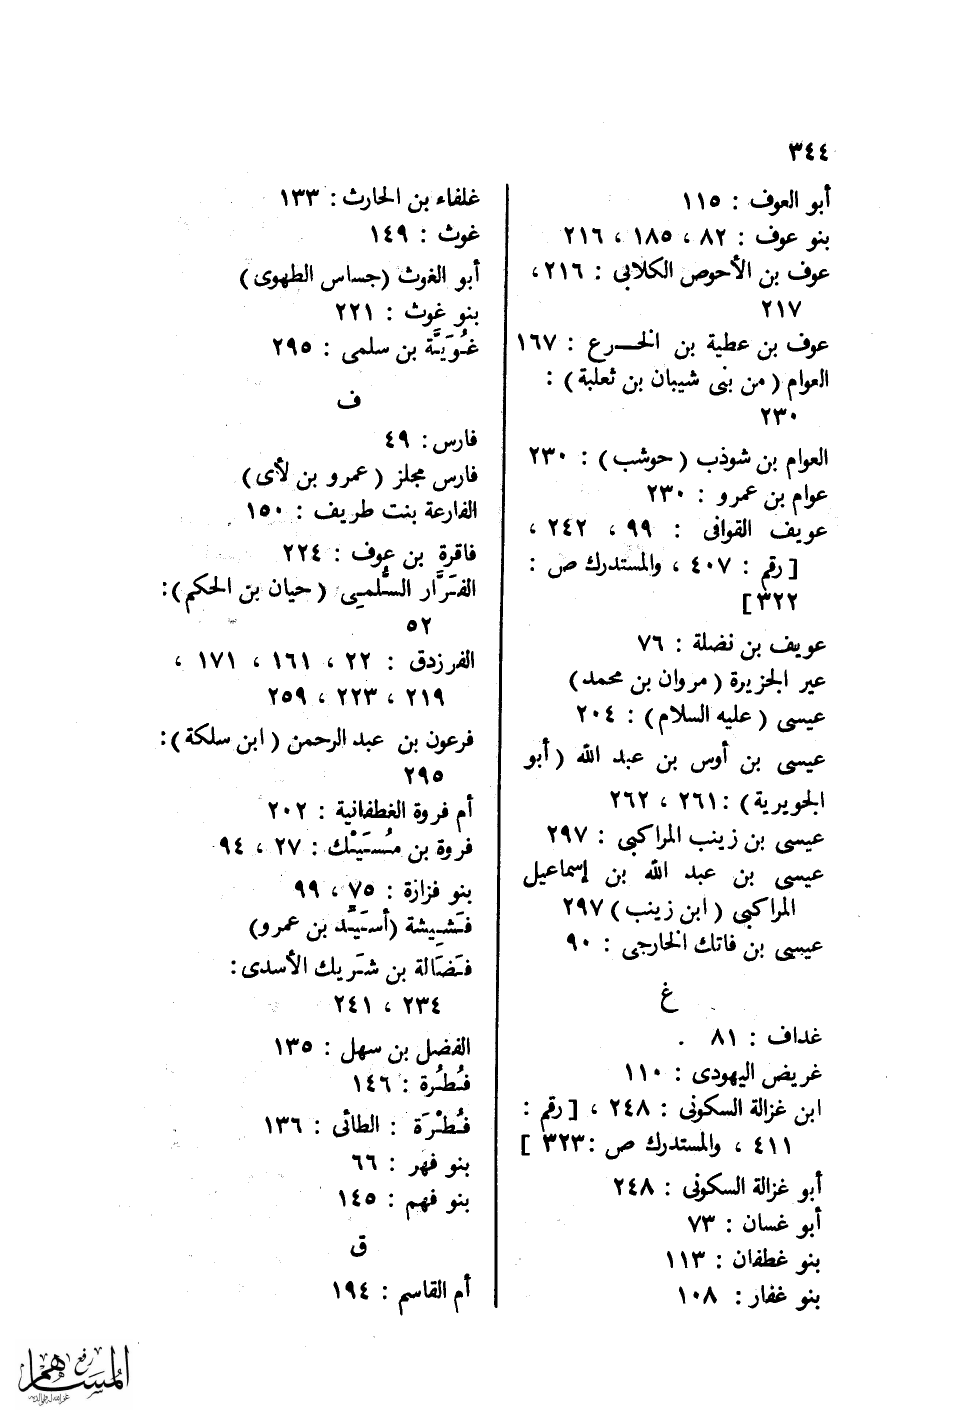 ٣٤٤
أبو العوف : ١١٥
بنو عوف : ٨٢ ، ١٨٥ ، ٢١٦
عوف بن الأحوص الكلابى : ٢١٦ ،
٢١٧
عوف بن عطية بن الخرع : ١٦٧
العوام ( من بنى شيبان بن ثعلبة ) :
٢٣٠
العوام بن شوذب ( حوشب ) : ٢٣٠
عوام بن عمرو : ٢٣٠
عويف القوافى : ٩٩ ، ٢٤٢ ،
[ رقم : ٤٠٧ ، والمستدرك ص :
٣٢٢ ]
عويف بن نضلة : ٧٦
عير الجزيرة ( مروان بن محمد )
عيسى ( عليه السلام ) : ٢٠٤
عيسى بن أوس بن عبد الله ( أبو
الجويرية ) : ٢٦١ ، ٢٦٢
عيسى بن زينب المراكبى : ٢٩٧
عيسى بن عبد الله بن إسماعيل
المراكبى ( ابن زينب ) ٢٩٧
عيسى بن فاتك الخارجى : ٩٠
غ
غداف : ٨١
غريض اليهودى : ١١٠
ابن غزالة السكونى : ٢٤٨ ، [ رقم :
٤١١ ، والمستدرك ص : ٣٢٣ ]
أبو غزالة السكونى : ٢٤٨
أبو غسان : ٧٣
بنو غطفان : ١١٣
بنو غفار : ١٠٨
غلفاء بن الحارث : ١٣٣
غوث : ١٤٩
أبو الغوث (جساس الطهوى)
بنو غوث : ٢٢١
غُوَيَّة بن سلمى : ٢٩٥
ف
فارس : ٤٩
فارس مجلز ( عمرو بن لأى )
الفارعة بنت طريف : ١٥٠
فاقرة بن عوف : ٢٢٤
الفَرَّار السُّلَمِى ( حيان بن الحكم ) :
٥٢
الفرزدق : ٢٢ ، ١٦١ ، ١٧١ ،
٢١٩ ، ٢٢٣ ، ٢٥٩
فرعون بن عبد الرحمن ( ابن سلكة ) :
٢٩٥
أم فروة الغطفانية : ٢٠٢
فروة بن مُسَيْك : ٢٧ ، ٩٤
بنو فزارة : ٧٥ ، ٩٩
فَشِيشة (أسَيَّد بن عمرو)
فَضَالة بن شَريك الأسدى :
٢٣٤ ، ٢٤١
الفضل بن سهل : ١٣٥
فُطُرة : ١٤٦
فُطْرَة : الطائى : ١٣٦
بنو فهر : ٦٦
بنو فهم : ١٤٥
ق
أم القاسم : ١٩٤
رفع
المساهم